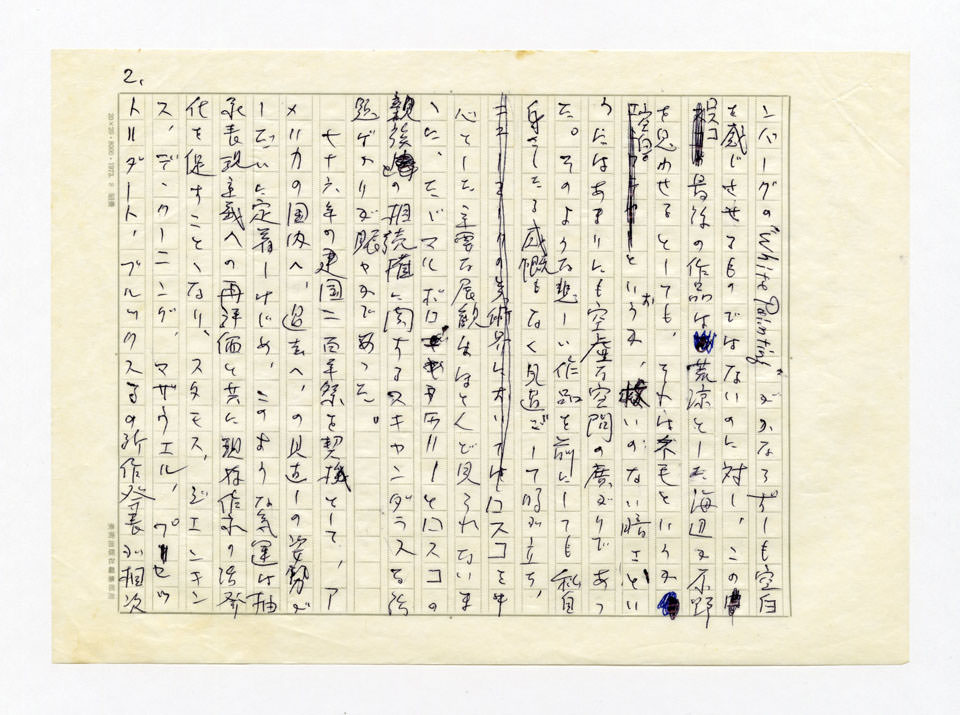 2.
ンバーグの“White Painting”がかならずしも空白
を感じさせるものではないのに対し、この
ロスコ最後の作品は荒涼とした海辺か原野
を思わせるとしても、それは末毛というか
空白というか、おさいのない暗さとい
うにはあまりにも空虚な空間の広がりであっ
た。そのような悲しい作品を前にしても私自
身さしたる感慨もなく見過ごして時が立ち、
ロスコを中
心とした主要な展観はほとんど見られないま
ゝだった、たゞマルボロ・ギャラリーとロスコの
親族の相続権に関するスキャンダラスな話
題ばかりが賑やかであった。
七十六年の建国二百年祭を契機として、ア
メリカの国内へ、過去へ、の見直しの姿勢が
しだいに定着しはじめ、このような気運は抽
象表現主義への再評価と共に現存作家の活発
化を促すことゝなり、スタモス、ジェンキン
ス、デ・クーニング、マザウエル、プーセッ
トルダート、ブルックス等の新作発表が相次
20×20